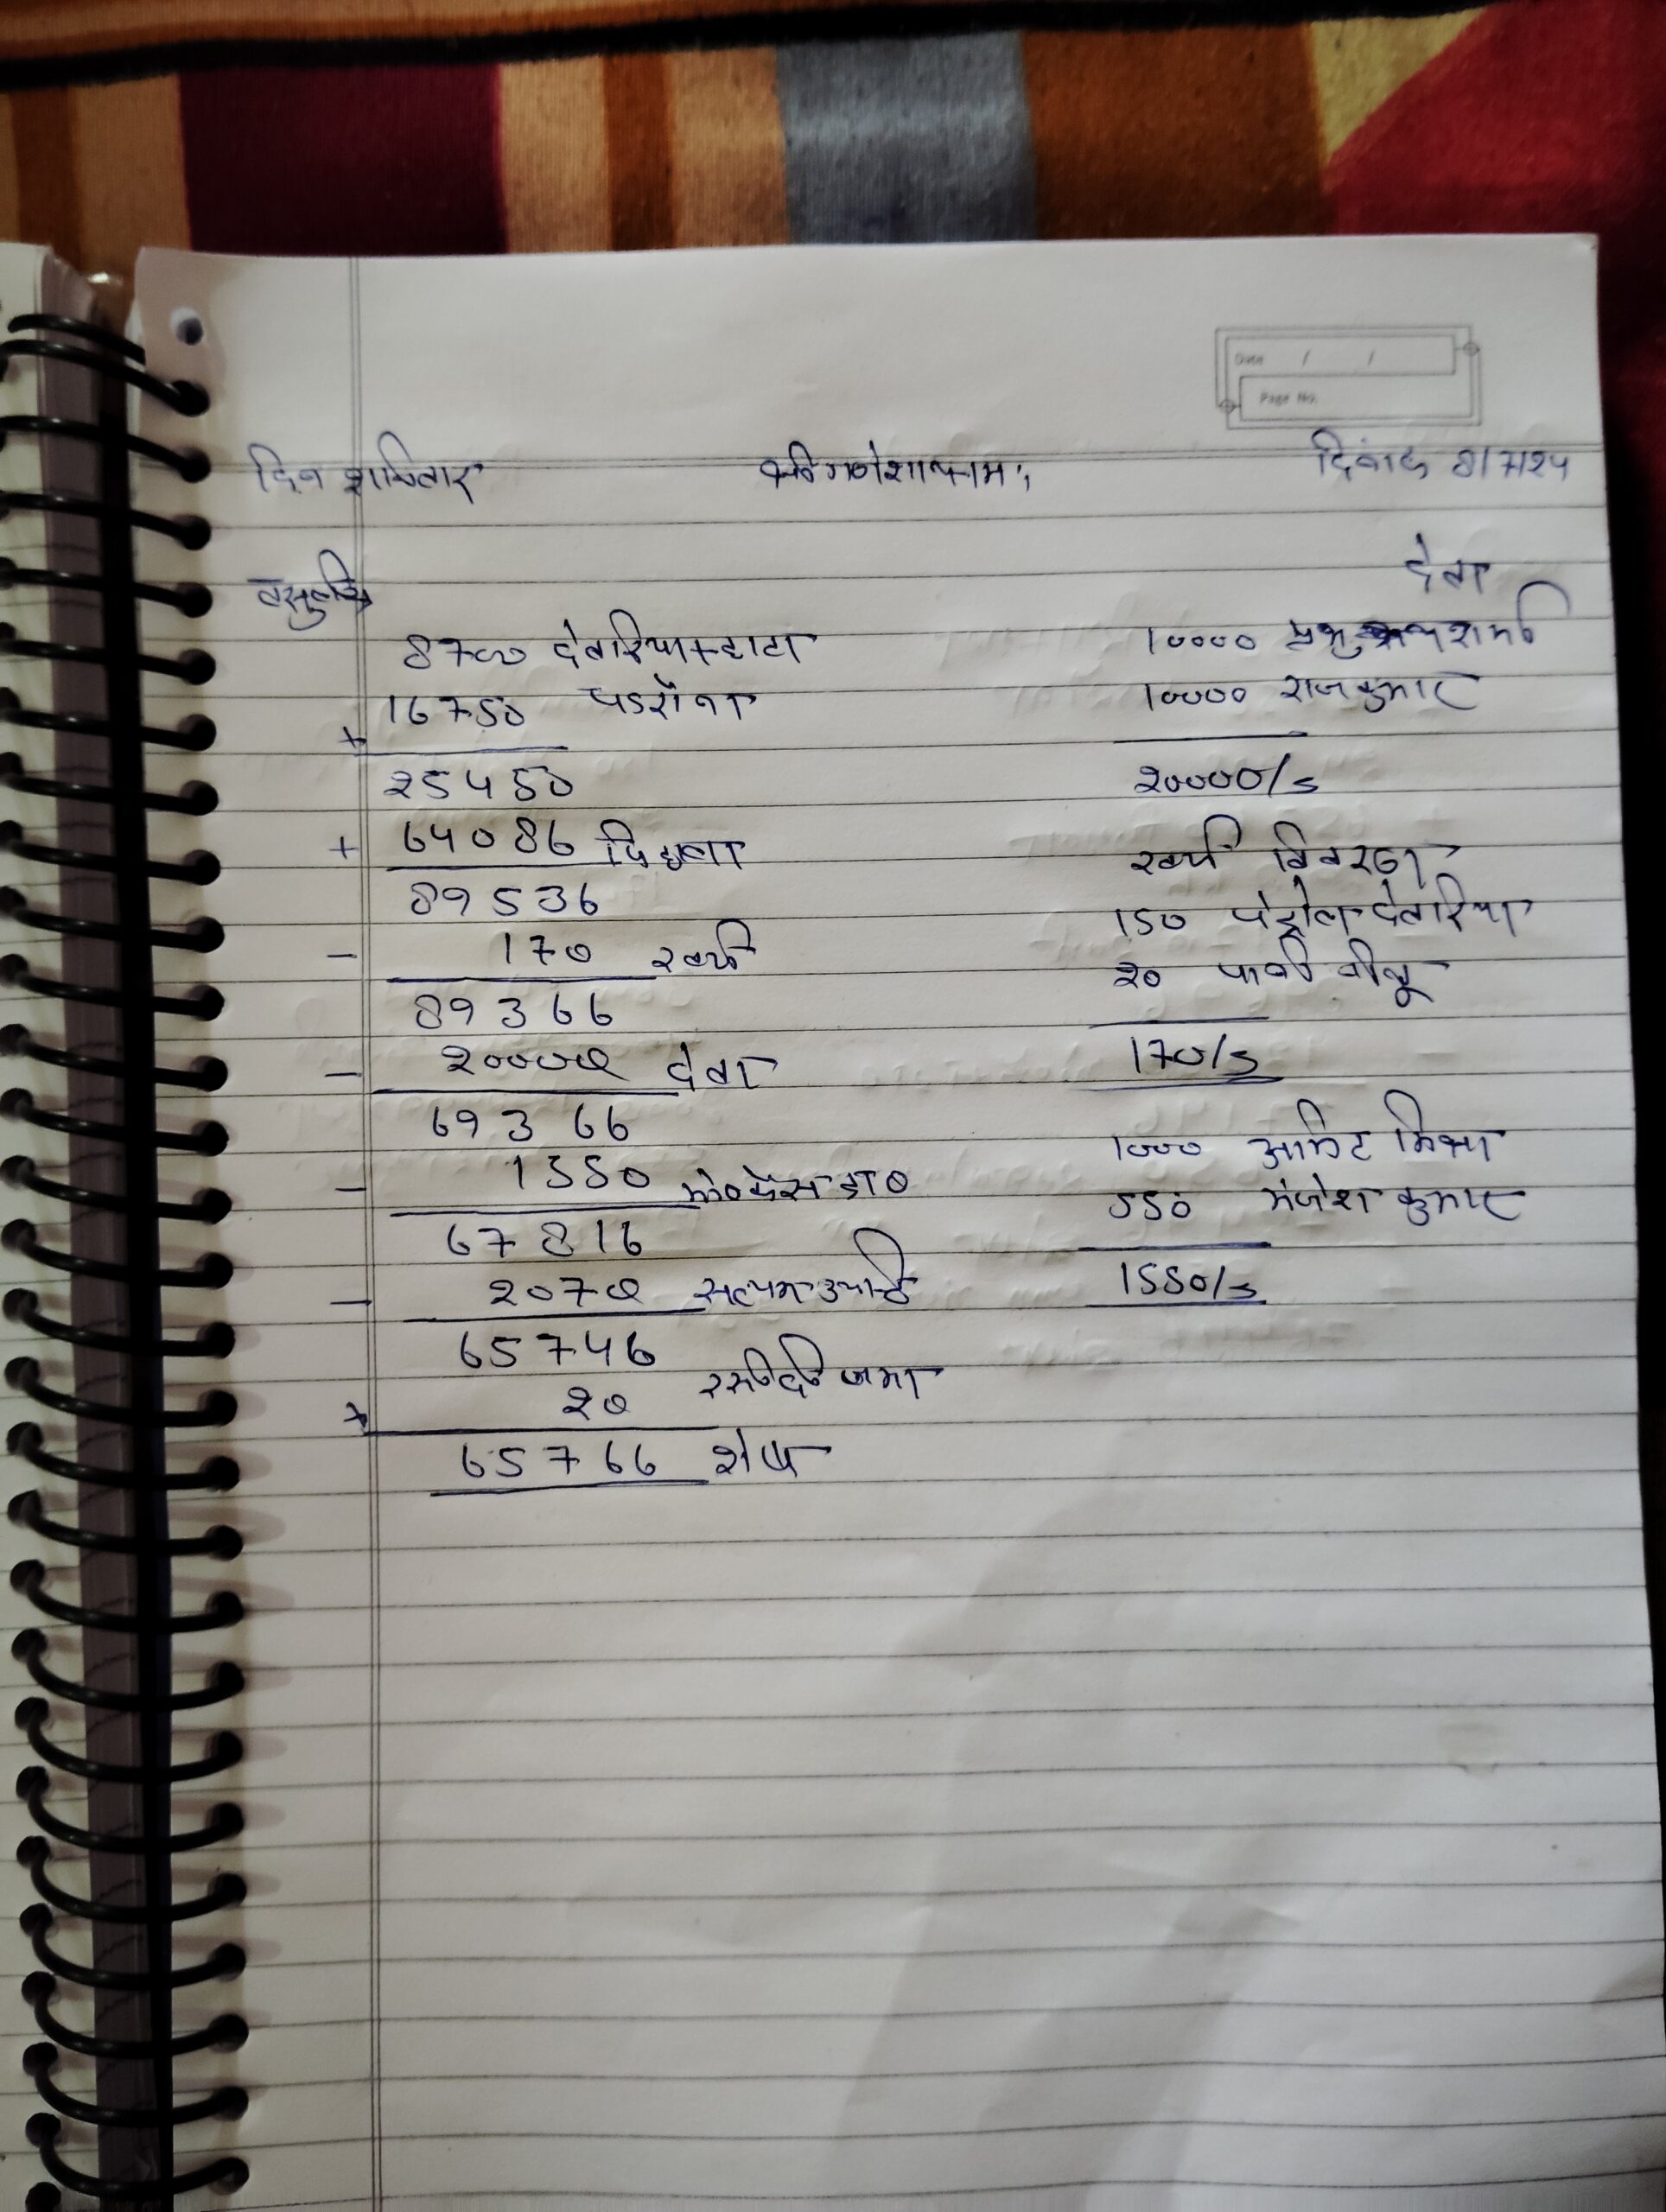 Date / /
Page No.
दिन शनिवार श्री गणेशाय नमः दिनांक 8/7/24
वसुली देना
8700 देवरिया+टाटा
16750 पडरौना
+
25450
+ 64086 पिछला
89536
- 170 खर्च
89366
- 20000 देना
69366
- 1550
67816
- 2070 सत्यम
65746
+ 20 रसीद जमा
65766 शेष
10000 शर्मा
10000 राजकुमार
20000/-
खर्च विवरण
150 पेट्रोल देवरिया
20 पानी
170/-
1000 मिश्रा
550 कुमार
1550/-